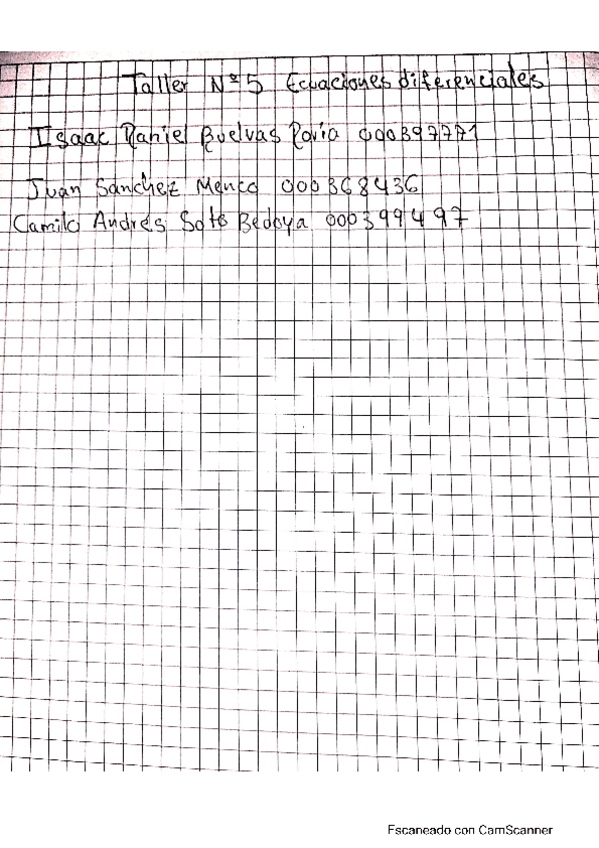 Taller Nº 5 Ecuaciones diferenciales
Isaac Daniel Buelvas Rovia 000397771
Juan Sanchez Menco 000368436
Camilo Andrés Soto Bedoya 000399497
Escaneado con CamScanner